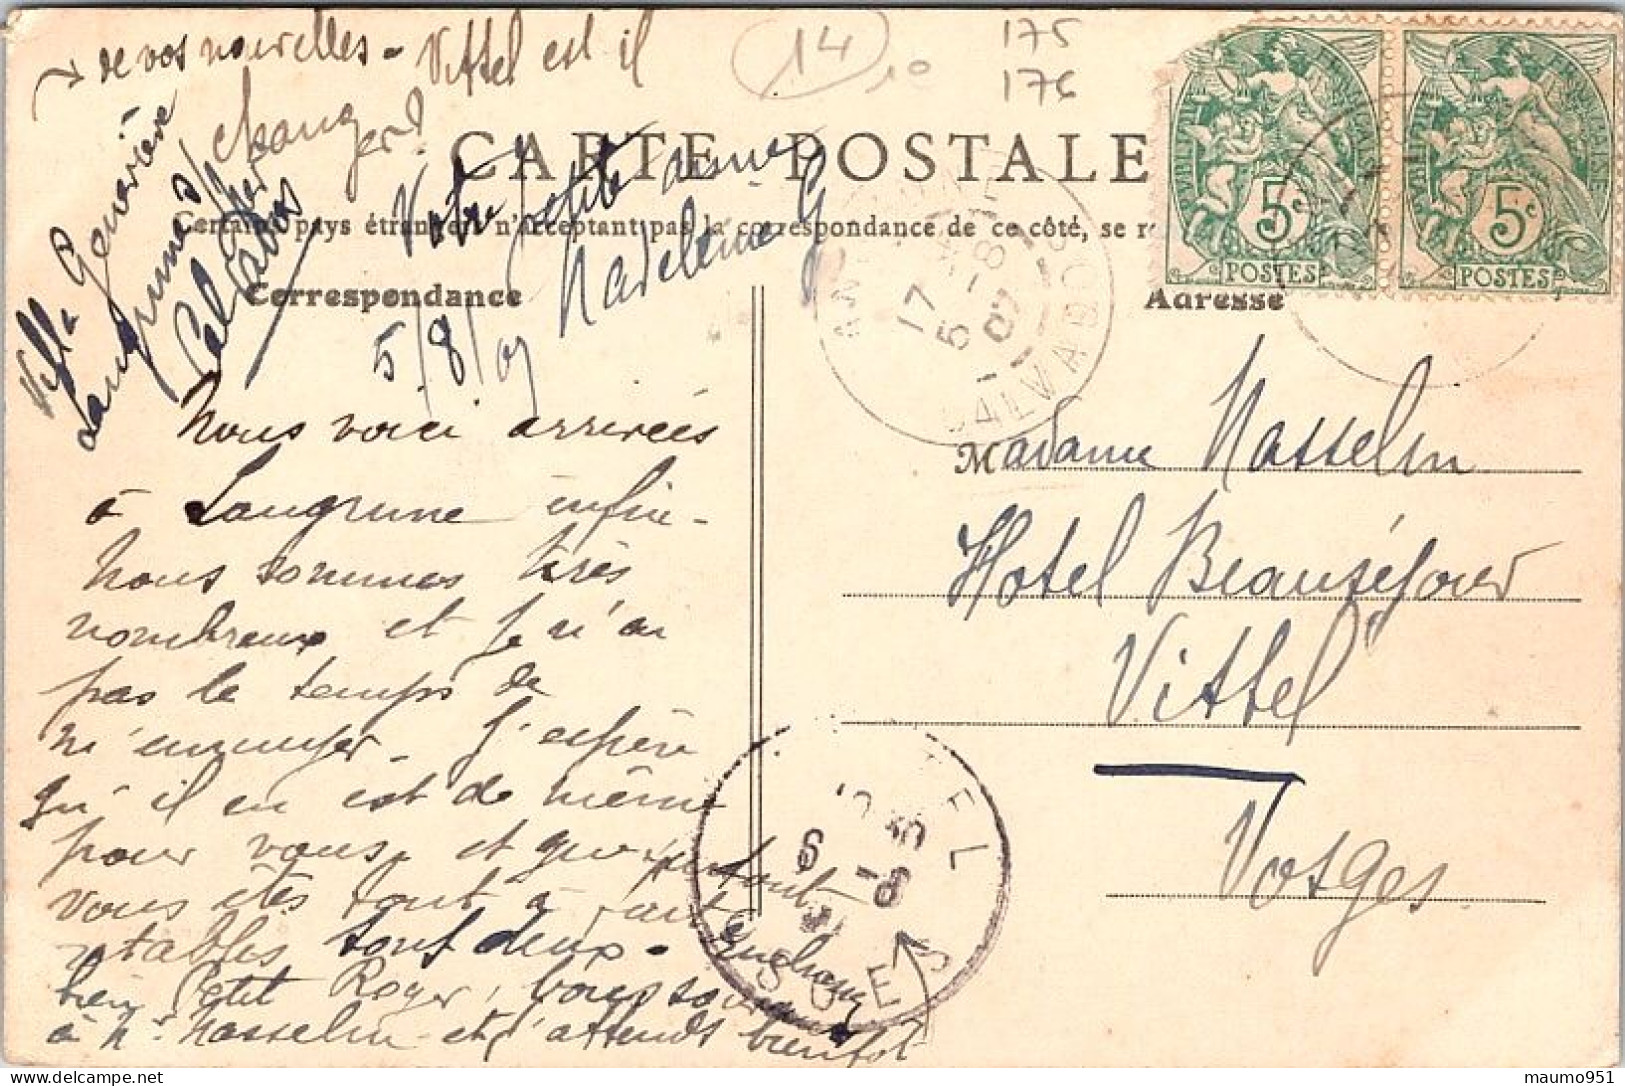 de vos nouvelles - Vittel est il
changer?
14
10
175
176
CARTE POSTALE
Certains pays étrangers n'acceptant pas la correspondance de ce côté, se re
Votre petite amie
Madeleine G
Villa Geneviève
Langrune s/
Mer
Calvados
Correspondance
Adresse
5/8/07
17
5 -8
07
CALVADOS
5c
POSTES
5c
POSTES
Nous voici arrivées
à Langrune enfin -
Nous sommes très
nombreux et je n'ai
pas le temps de
m'ennuyer - J'espère
qu'il en est de même
pour vous, et que
vous êtes tout à fait
tous deux -
bien Petit Roger,
à Mr Masselin et j'attends bientôt
Madame Masselin
Hotel Beauséjour
Vittel
Vosges
TEL
VOSGES
maumo951